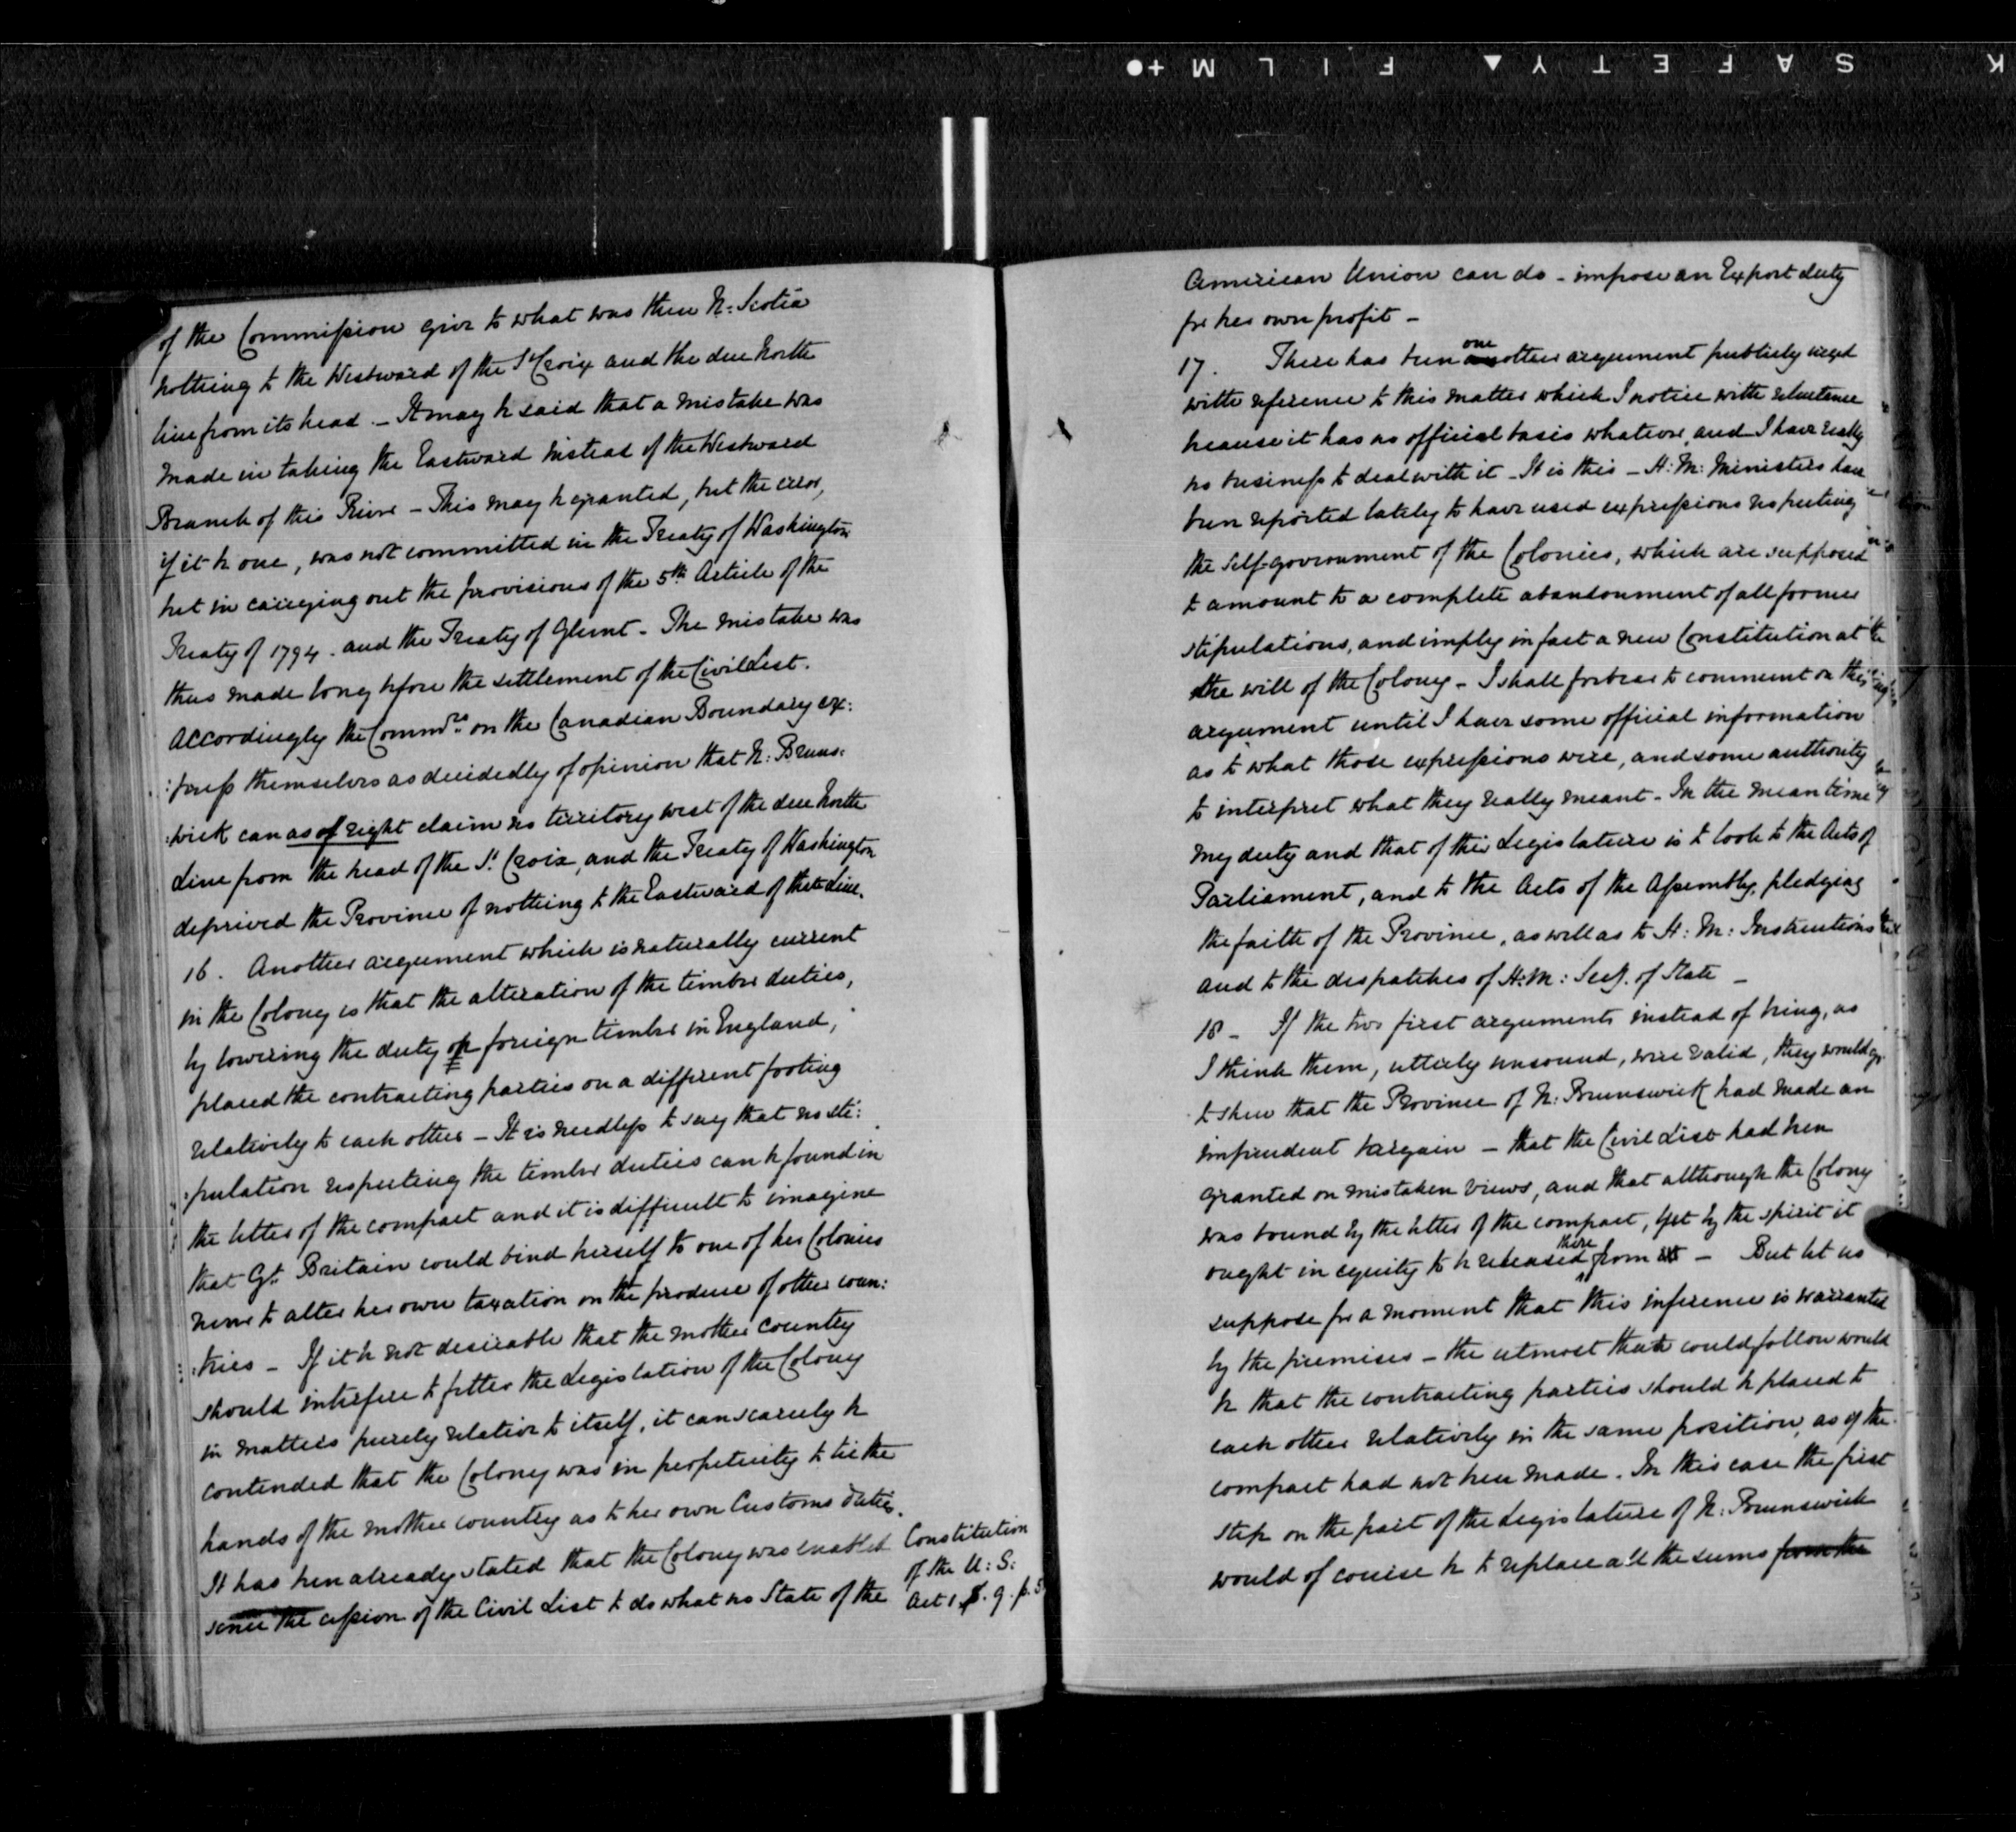 SAFETY ▲ FILM +●
K
of the Commission give to what was then N: Scotia
nothing to the Westward of the St Croix and the due North
line from its head. – It may be said that a mistake was
made in taking the Eastward instead of the Westward
Branch of this River – This may be granted, but the error,
if it be one, was not committed in the Treaty of Washington
but in carrying out the provisions of the 5th Article of the
Treaty of 1794. and the Treaty of Ghent – The mistake was
thus made long before the settlement of the Civil List.
Accordingly the Commrs. on the Canadian Boundary ex:
:press themselves as decidedly of opinion that N: Bruns:
:wick can as of right claim no territory west of the due North
Line from the head of the St. Croix, and the Treaty of Washington
deprived the Province of nothing to the Eastward of that Line.
16. Another argument which is naturally current
in the Colony is that the alteration of the timber duties,
by lowering the duty on foreign timber in England,
placed the contracting parties on a different footing
relatively to each other – It is needless to say that no sti:
:pulation respecting the timber duties can be found in
the letter of the compact and it is difficult to imagine
that Gt. Britain would bind herself to one of her Colonies
never to alter her own taxation on the produce of other coun:
:tries – If it be not desirable that the mother country
should interfere to fetter the Legislation of the Colony
in matters purely relative to itself, it can scarcely be
contended that the Colony was in perpetuity to tie the
hands of the mother country as to her own Customs duties.
It has been already stated that the Colony was enabled
since the cession of the Civil List to do what no State of the
Constitution
of the U: S:
Art 1. S. 9. p. 5
American Union can do – impose an Export duty
for her own profit –
17. There has been one another argument publicly urged
with reference to this matter which I notice with reluctance
because it has no official basis whatever, and I have really
no business to deal with it – It is this – H: M: Ministers have
been reported lately to have used expressions respecting
the self-government of the Colonies, which are supposed
to amount to a complete abandonment of all former
stipulations, and imply in fact a new Constitution at
the will of the Colony – I shall forbear to comment on this
argument until I have some official information
as to what those expressions were, and some authority
to interpret what they really meant – In the mean time
my duty and that of this Legislature is to look to the Acts of
Parliament, and to the Acts of the Assembly, pledging
the faith of the Province, as well as to H: M: Instructions
and to the despatches of H: M: Secy. of State –
18 – If the two first arguments instead of being, as
I think them, utterly unsound, were valid, they would go
to shew that the Province of N: Brunswick had made an
imprudent bargain – that the Civil List had been
granted on mistaken views, and that although the Colony
was bound by the letter of the compact, yet by the spirit it
ought in equity to be released there from it – But let us
suppose for a moment that this inference is warranted
by the premises – the utmost that could follow would
be that the contracting parties should be placed to
each other relatively in the same position, as if the
compact had not been made. In this case the first
step on the part of the Legislature of N: Brunswick
would of course be to replace all the sums from the